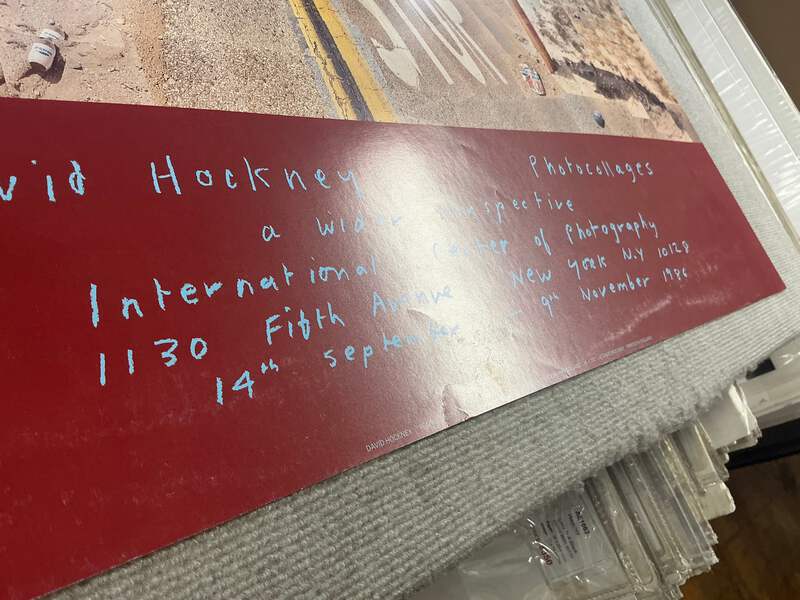 STOP
vid Hockney Photocollages
a wider perspective
International Center of Photography
1130 Fifth Avenue New York N.Y 10128
14th September - 9th November 1986
DAVID HOCKNEY